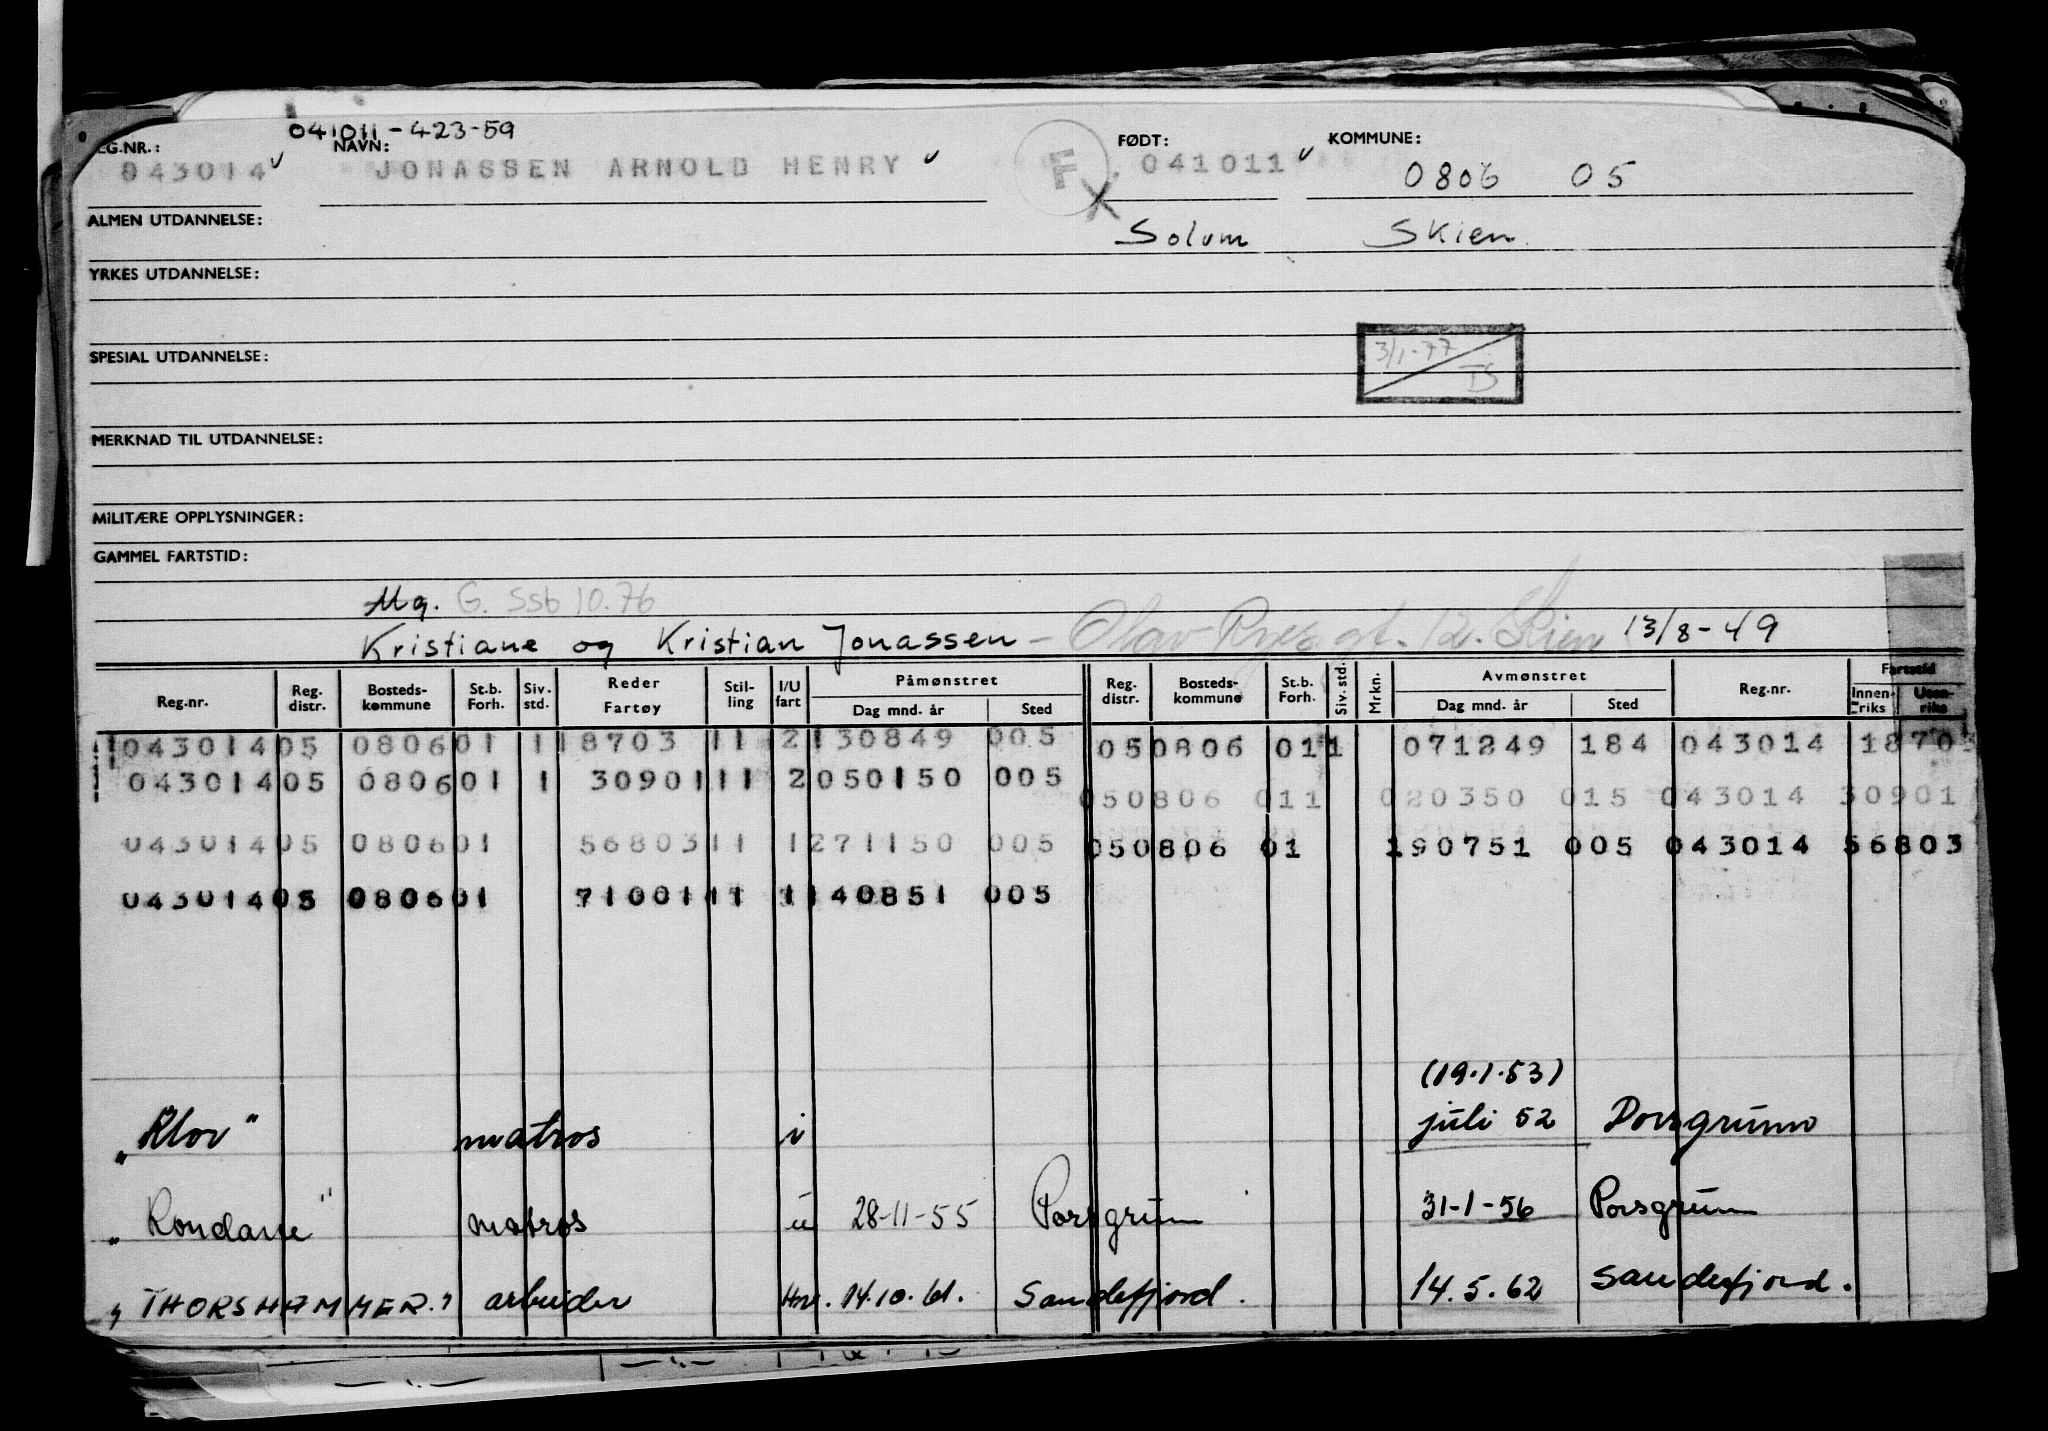 041011-423-59
EG.NR.: NAVN: FØDT: KOMMUNE:
043014 JONASSEN ARNOLD HENRY F 041011 0806 05
ALMEN UTDANNELSE: Solum Skien
YRKES UTDANNELSE:
SPESIAL UTDANNELSE:
3/1-77
IS
MERKNAD TIL UTDANNELSE:
MILITÆRE OPPLYSNINGER:
GAMMEL FARTSTID:
G. SSb 10.76
Kristiane og Kristian Jonassen - Olav Ryes gt. 12. Skien 13/8-49
Reg.nr. Reg. distr. Bosteds- kommune St.b. Forh. Siv. std. Reder Fartøy Stil- ling I/U fart Påmønstret Dag mnd. år Sted Reg. distr. Bosteds- kommune St.b. Forh. Siv. std. Mrkn. Avmønstret Dag mnd. år Sted Reg.nr. Fartstid Innen- riks Uten- riks
043014 05 0806 01 1 18703 11 2 130849 005 05 0806 01 1 071249 184 043014 18703
043014 05 0806 01 1 30901 11 2 050150 005 05 0806 01 1 020350 015 043014 30901
043014 05 0806 01 56803 11 1 271150 005 05 0806 01 190751 005 043014 56803
043014 05 0806 01 71001 11 1 140851 005
(19.1.53)
"Klov" matros i juli 52 Porsgrunn
"Rondane" matros u 28-11-55 Porsgrunn 31-1-56 Porsgrunn
"THORSHAMMER" arbeider Hv. 14.10.61. Sandefjord. 14.5.62 Sandefjord.